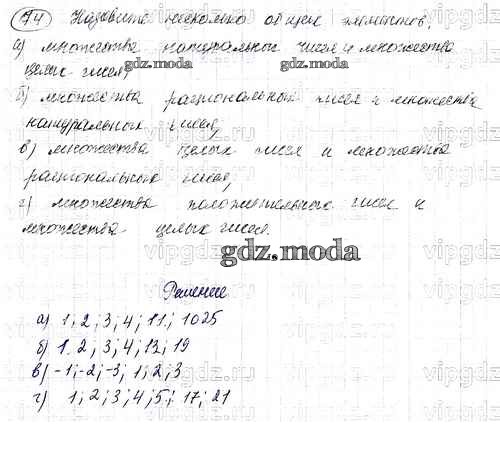 74 Назовите несколько общих элементов:
а) множества натуральных чисел и множества
целых чисел;
gdz.moda gdz.moda
б) множества рациональных чисел и множества
натуральных чисел;
в) множества целых чисел и множества
рациональных чисел;
г) множества положительных чисел и
множества целых чисел.
gdz.moda
Решение
а) 1; 2; 3; 4; 11; 1025
б) 1. 2; 3; 4; 12; 19
в) -1; -2; -3; 1; 2; 3
г) 1; 2; 3; 4; 5; 17; 21